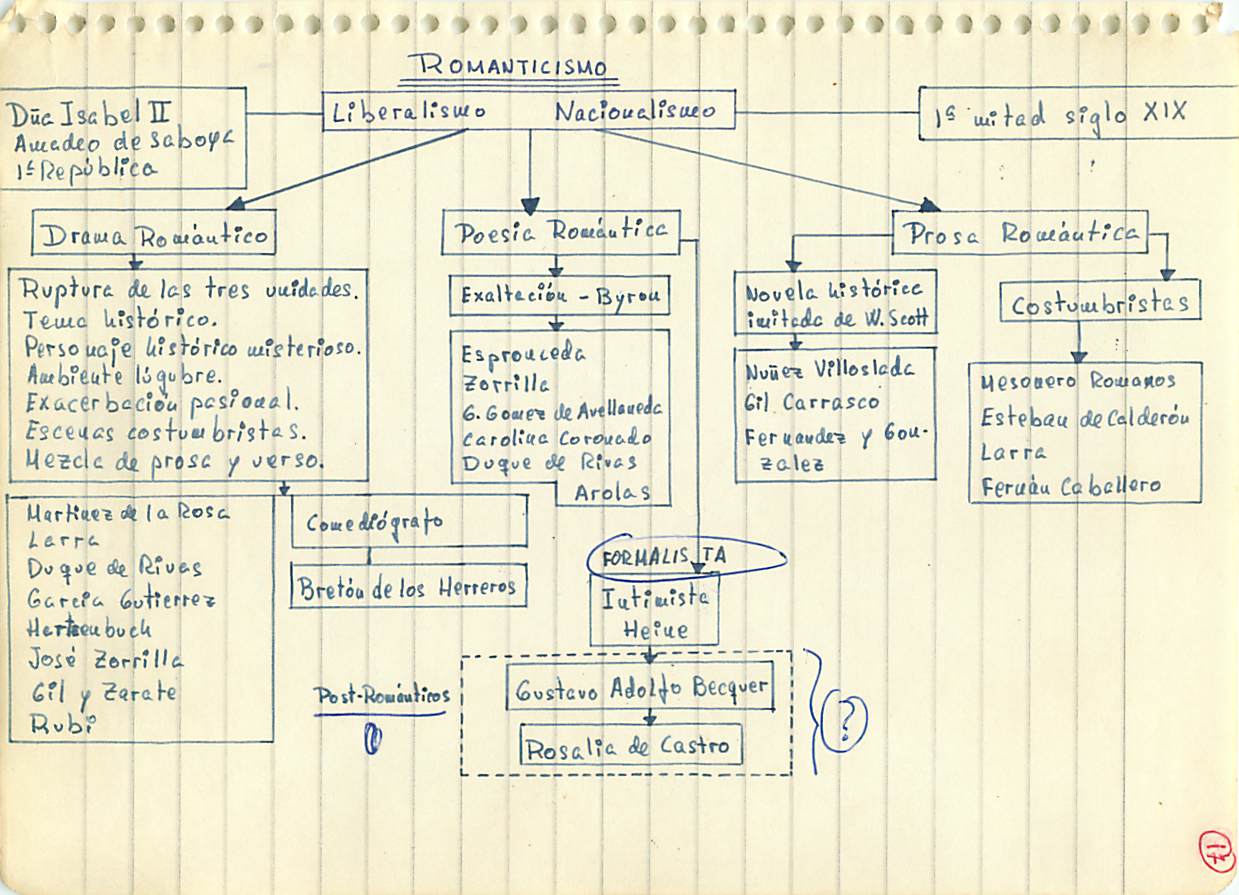 ROMANTICISMO
Dña Isabel II
Amadeo de Saboya
1ª República
Liberalismo Nacionalismo
1ª mitad siglo XIX
Drama Romántico
Ruptura de las tres unidades.
Tema histórico.
Personaje histórico misterioso.
Ambiente lúgubre.
Exacerbación pasional.
Escenas costumbristas.
Mezcla de prosa y verso.
Martinez de la Rosa
Larra
Duque de Rivas
Garcia Gutierrez
Hartzenbuch
José Zorrilla
Gil y Zarate
Rubi
Comediógrafo
Bretón de los Herreros
Poesia Romántica
Exaltación - Byron
Espronceda
Zorrilla
G. Gomez de Avellaneda
Carolina Coronado
Duque de Rivas
Arolas
FORMALISTA
Intimista
Heine
Post-Románticos
Gustavo Adolfo Becquer
Rosalia de Castro
?
Prosa Romántica
Novela histórica
imitada de W. Scott
Nuñez Villoslada
Gil Carrasco
Fernandez y Gon-
zalez
Costumbristas
Mesonero Romanos
Esteban de Calderón
Larra
Fernán Caballero